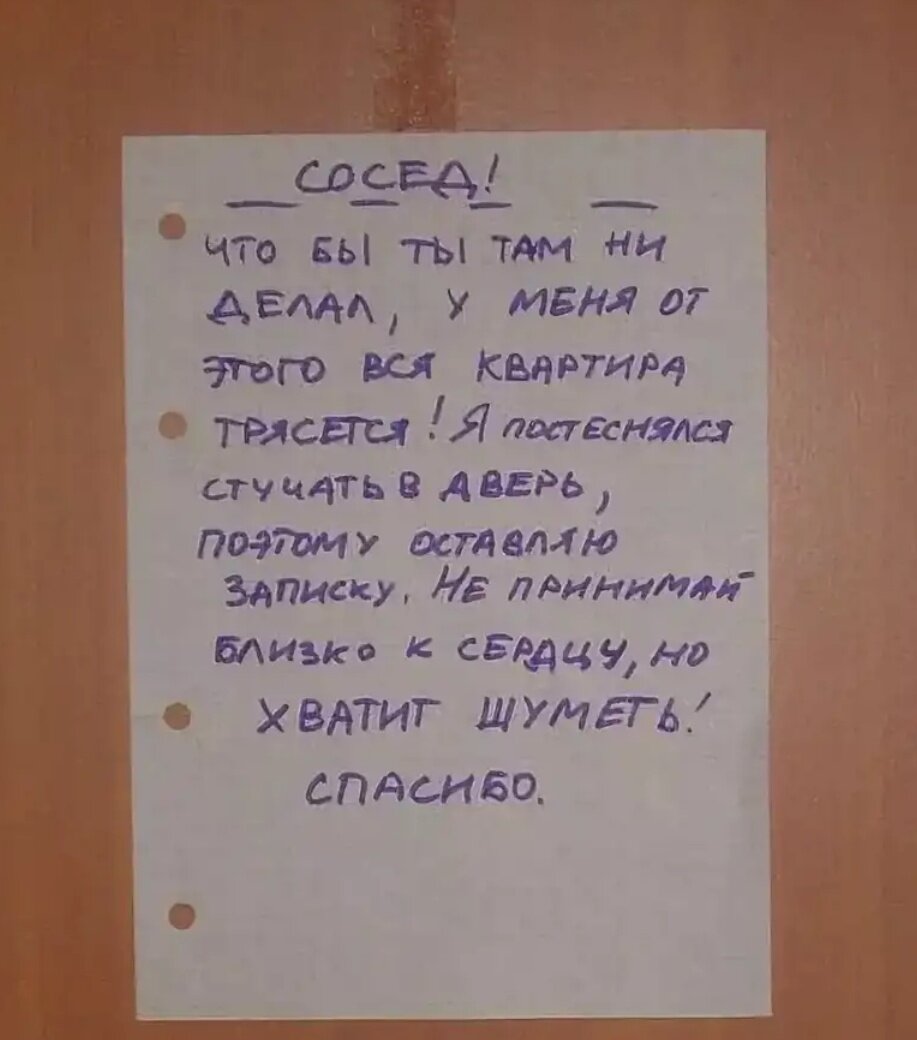 СОСЕД!
ЧТО БЫ ТЫ ТАМ НИ
ДЕЛАЛ, У МЕНЯ ОТ
ЭТОГО ВСЯ КВАРТИРА
ТРЯСЕТСЯ! Я ПОСТЕСНЯЛСЯ
СТУЧАТЬ В ДВЕРЬ,
ПОЭТОМУ ОСТАВЛЯЮ
ЗАПИСКУ. НЕ ПРИНИМАЙ
БЛИЗКО К СЕРДЦУ, НО
ХВАТИТ ШУМЕТЬ!
СПАСИБО.